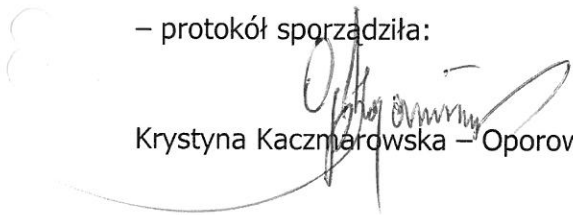 – protokół sporządziła:
Krystyna Kaczmarowska – Oporow